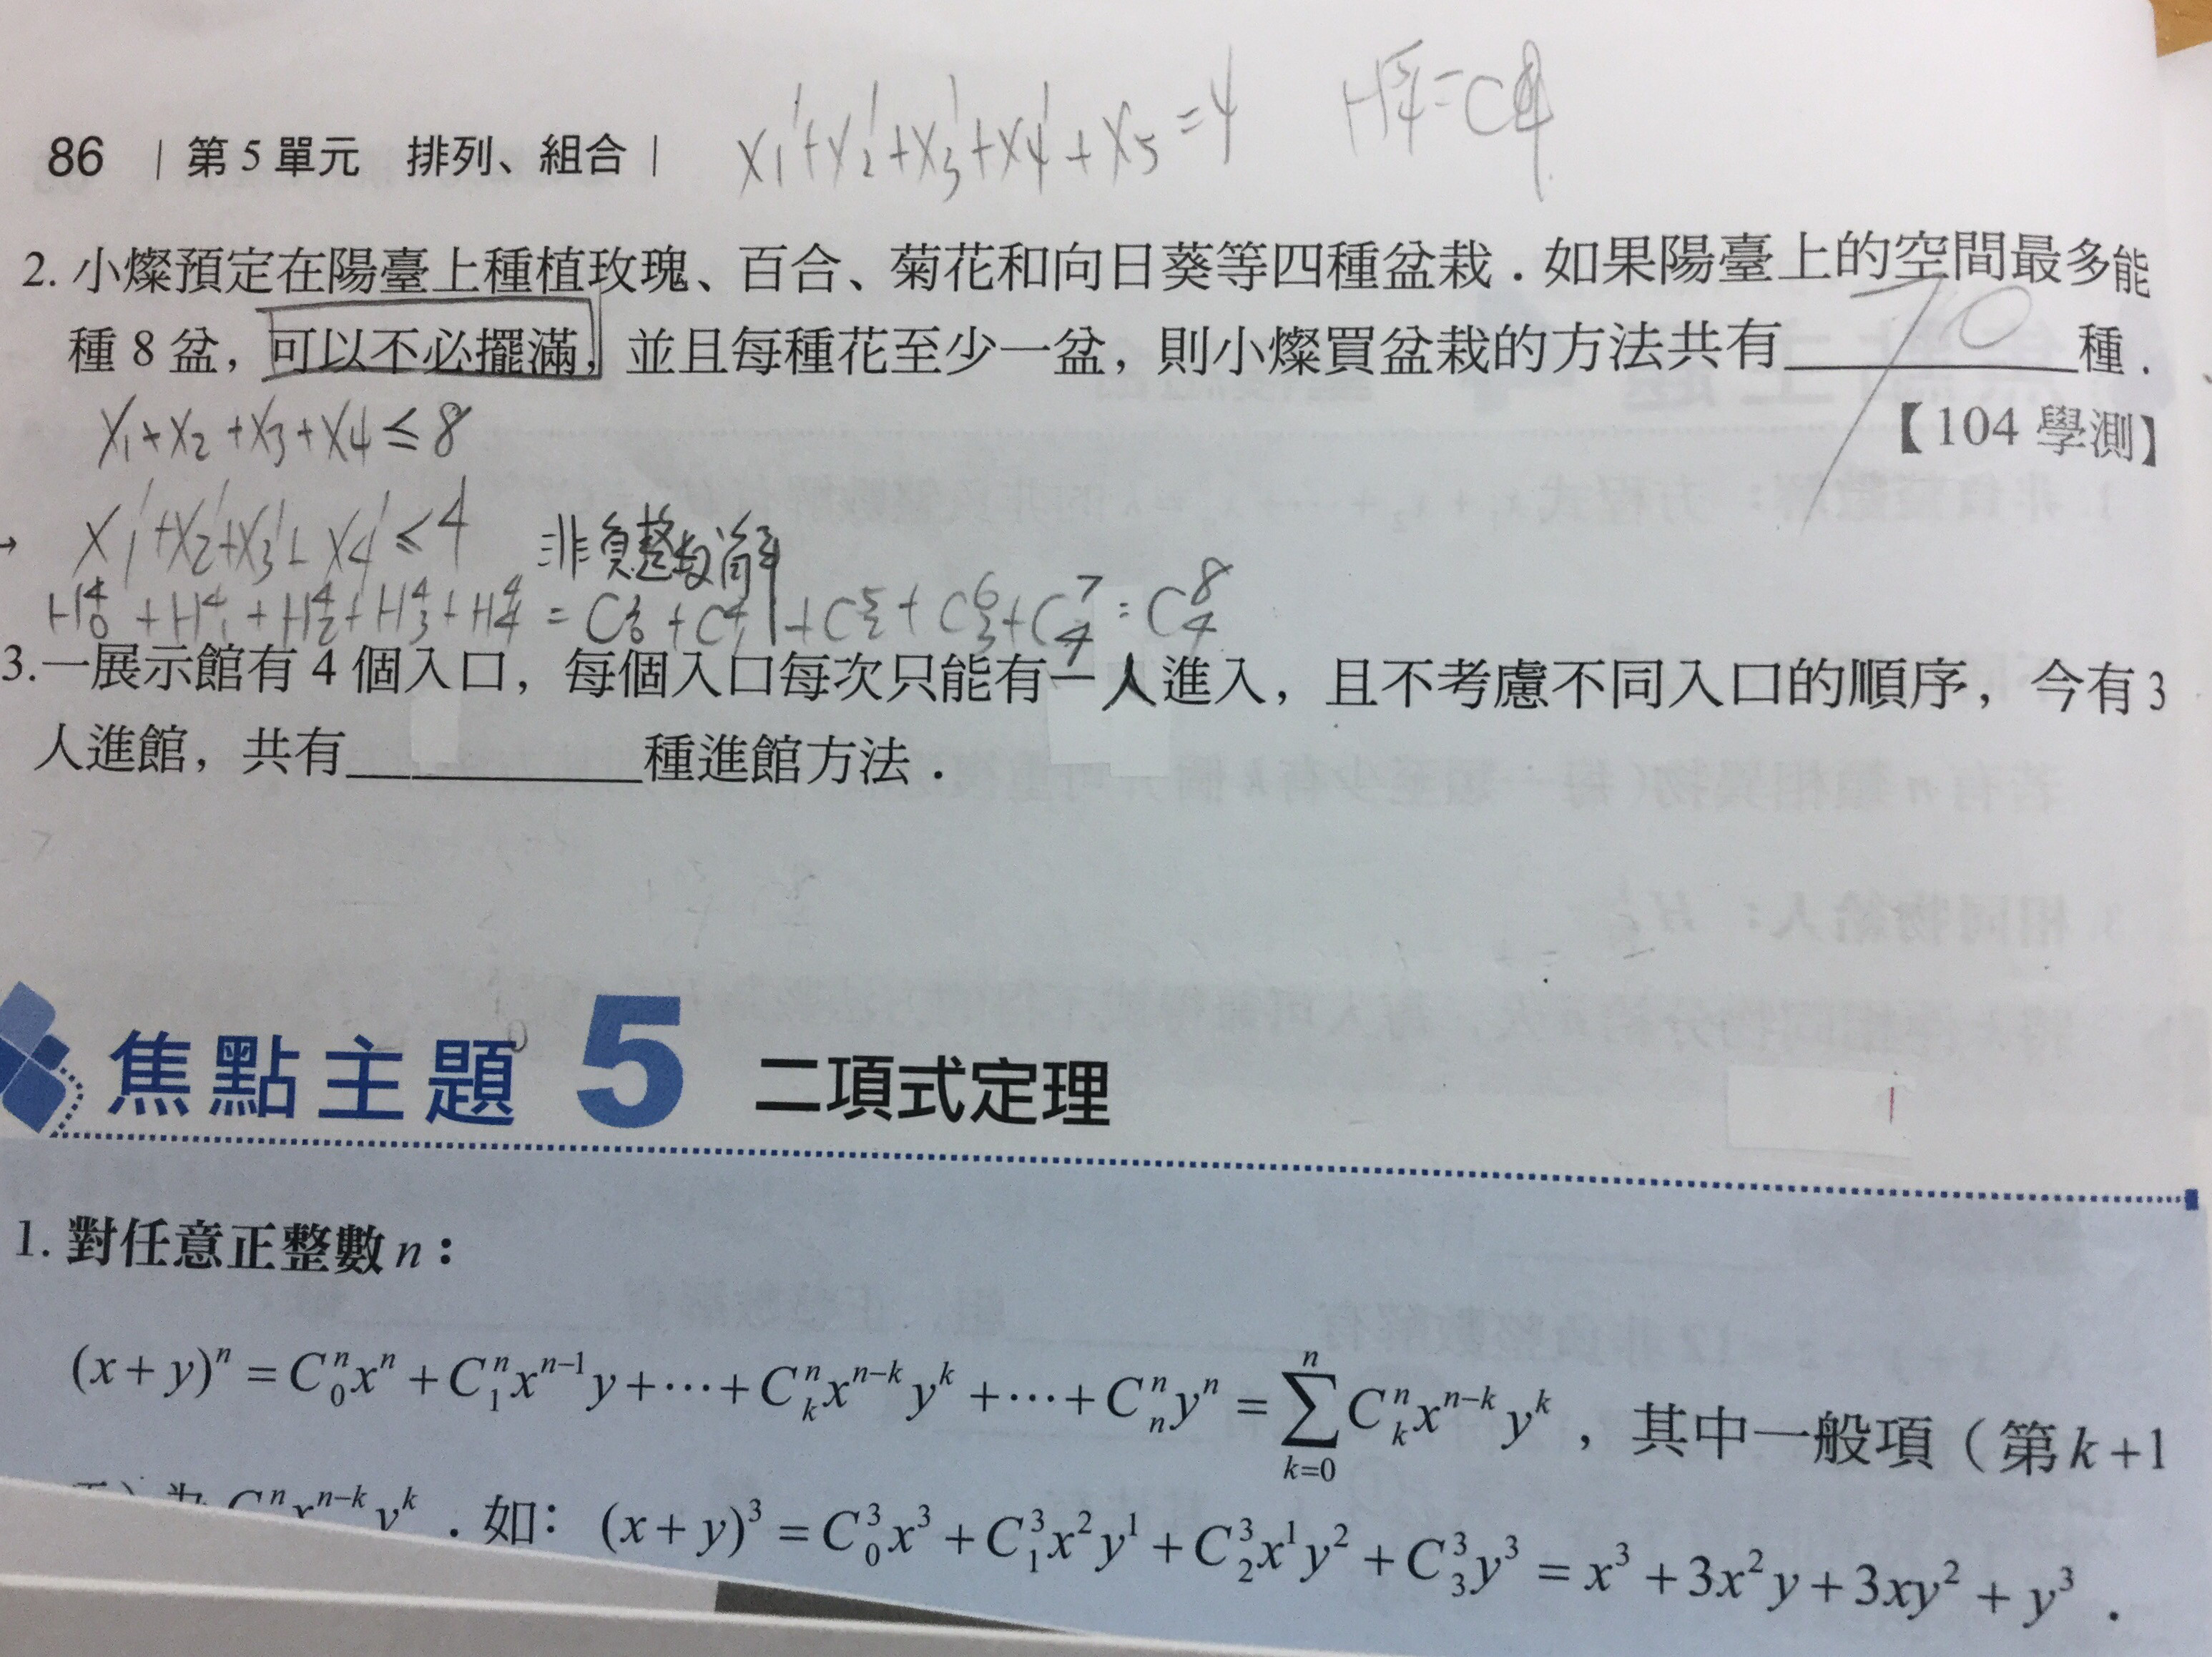 x₁' + x₂' + x₃' + x₄' + x₅ = 4 H⁵₄ = C⁸₄
86 | 第 5 單元 排列、組合 |
2. 小燦預定在陽臺上種植玫瑰、百合、菊花和向日葵等四種盆栽．如果陽臺上的空間最多能
種 8 盆，可以不必擺滿，並且每種花至少一盆，則小燦買盆栽的方法共有 70 種．
【104 學測】
x₁ + x₂ + x₃ + x₄ ≤ 8
→ x₁' + x₂' + x₃' + x₄' ≤ 4 非負整數解
H⁴₀ + H⁴₁ + H⁴₂ + H⁴₃ + H⁴₄ = C³₀ + C⁴₁ + C⁵₂ + C⁶₃ + C⁷₄ = C⁸₄
3. 一展示館有 4 個入口，每個入口每次只能有一人進入，且不考慮不同入口的順序，今有 3
人進館，共有______種進館方法．
焦點主題 5 二項式定理
1. 對任意正整數 n：
(x + y)ⁿ = Cⁿ₀xⁿ + Cⁿ₁xⁿ⁻¹y + ⋯ + Cⁿₖxⁿ⁻ᵏyᵏ + ⋯ + Cⁿₙyⁿ = ∑ₖ₌₀ⁿ Cⁿₖxⁿ⁻ᵏyᵏ，其中一般項（第 k + 1
為 Cⁿ xⁿ⁻ᵏyᵏ．如：(x + y)³ = C³₀x³ + C³₁x²y¹ + C³₂x¹y² + C³₃y³ = x³ + 3x²y + 3xy² + y³．